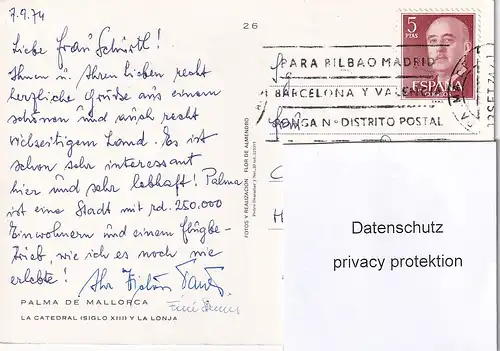 7.9.74
Liebe Frau
Ihnen u. Ihren Lieben recht
herzliche Grüße aus einem
schönen und auch recht
vielseitigem Land. Es ist
schon sehr interessant
hier und sehr lebhaft! Palma
ist eine Stadt mit rd. 250.000
Einwohnern und einem Flugbe-
trieb, wie ich es noch nie
erlebte! Ihr
PALMA DE MALLORCA
LA CATEDRAL (SIGLO XIII) Y LA LONJA
26
FOTOS Y REALIZACION FLOR DE ALMENDRO
5
PTAS
ESPAÑA
PARA BILBAO MADRID
BARCELONA Y VALEN
PONGA Nº DISTRITO POSTAL
Datenschutz
privacy protektion